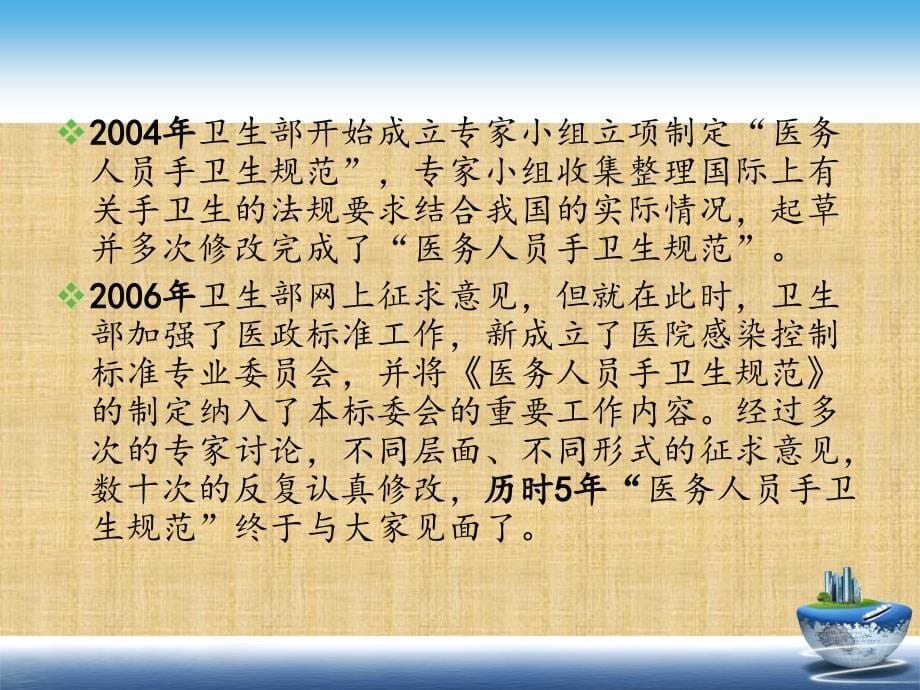 2004年卫生部开始成立专家小组立项制定“医务
人员手卫生规范”，专家小组收集整理国际上有
关手卫生的法规要求结合我国的实际情况，起草
并多次修改完成了“医务人员手卫生规范”。
2006年卫生部网上征求意见，但就在此时，卫生
部加强了医政标准工作，新成立了医院感染控制
标准专业委员会，并将《医务人员手卫生规范》
的制定纳入了本标委会的重要工作内容。经过多
次的专家讨论，不同层面、不同形式的征求意见，
数十次的反复认真修改，历时5年“医务人员手卫
生规范”终于与大家见面了。